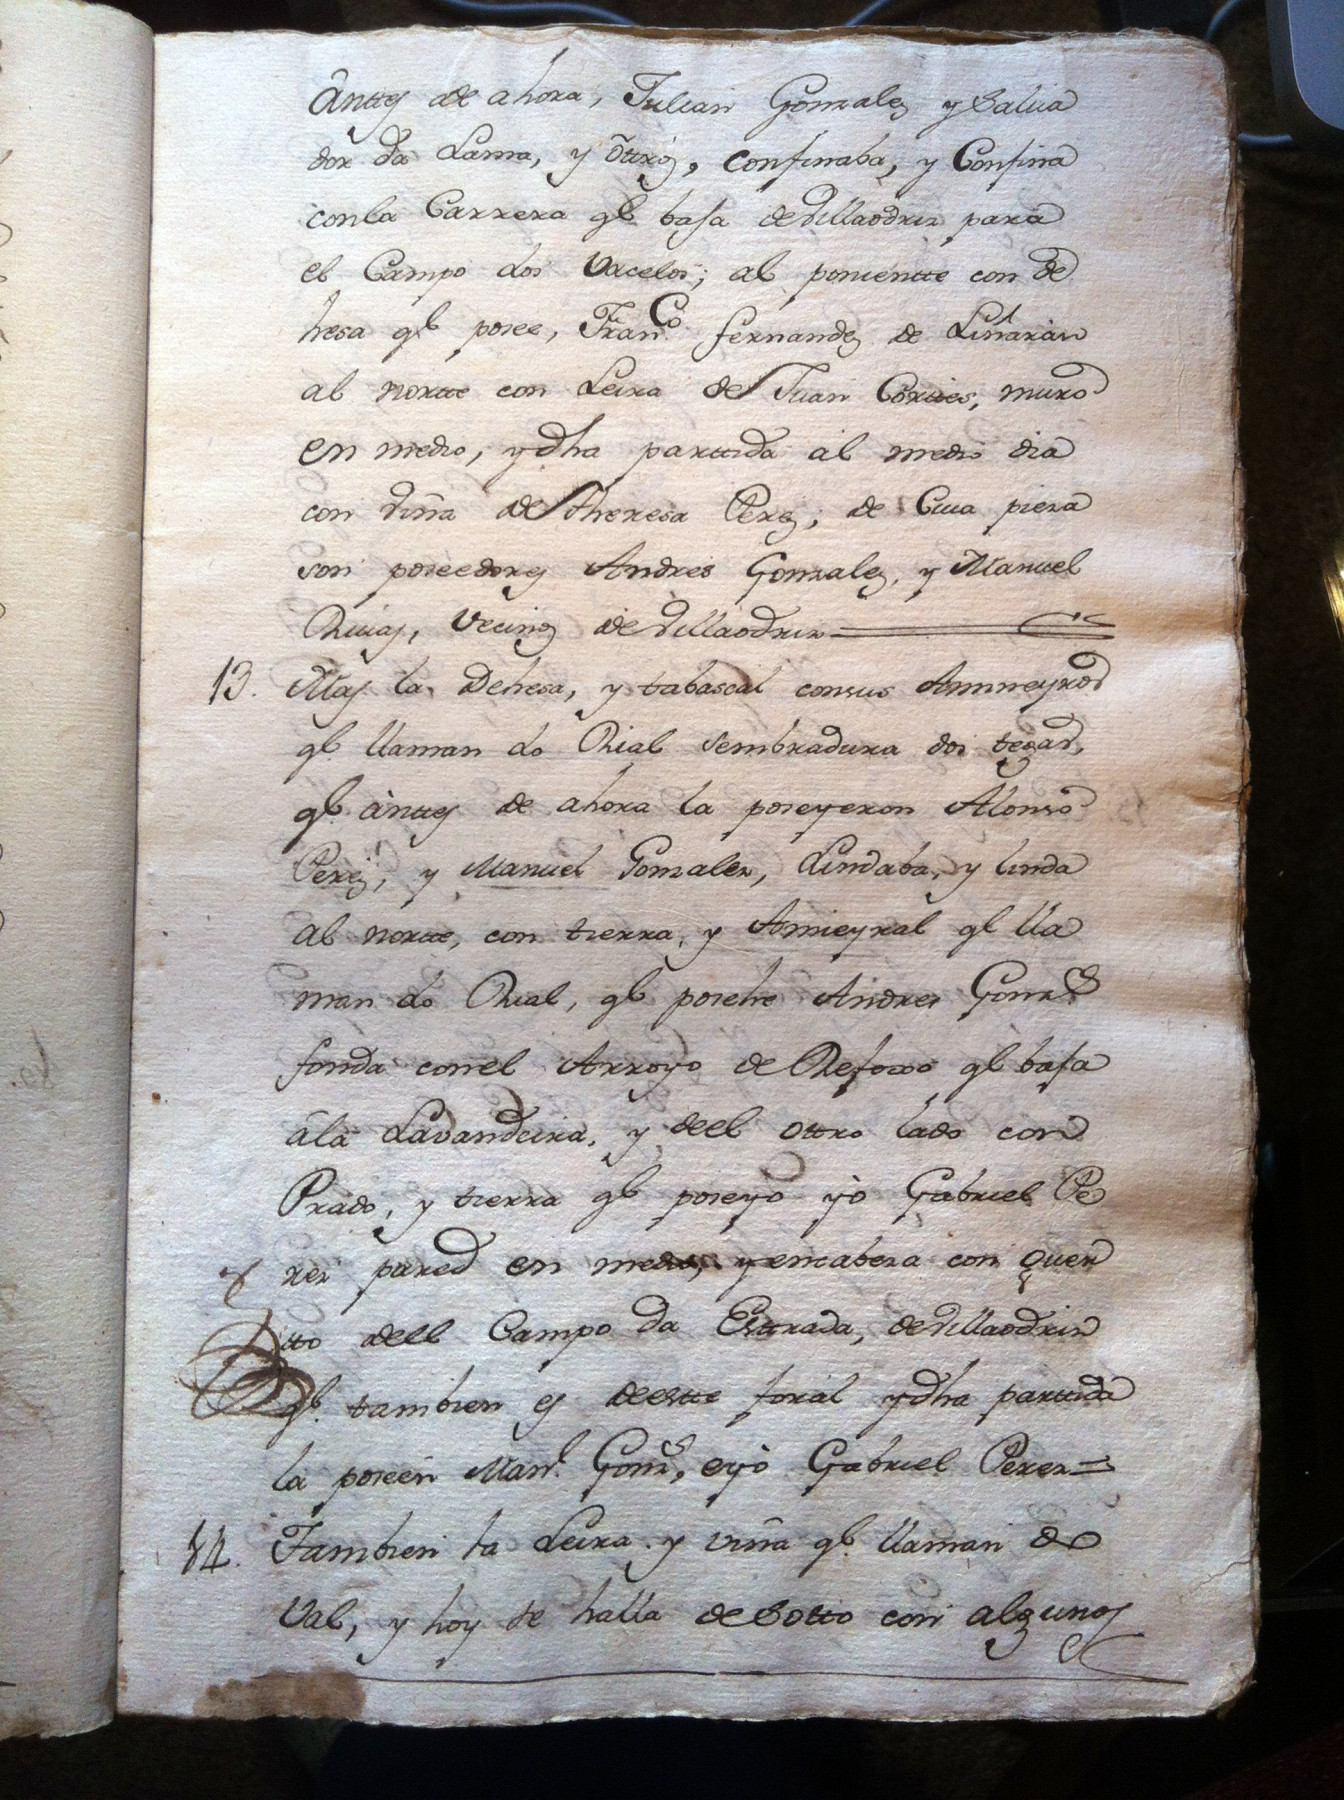 ântes de ahora, Julian Gonzalez y Salva
dor da Lama, y ôttros, confinaba, y Confina
conla Carrera qe. basa de Villaodrir para
el Campo dos Vacelos; al ponientte con de
hesa qe. posee, Franco. fernandez de Liñaràn
al nortte con Leira de Juan Corttes, muro
en medio, y dha parttida al medio dia
con viña de Theresa Perez; de Cuia pieza
son poseedores Andres Gonzalez, y Manuel
Rivas, Vecinos de Villaodrir
13. Mas la Dehesa, y tabascal consus Amneyros
qe. llaman do Rial Sembradura dos tegas,
qe. àntes de ahora la poseyeron Alonso
Perez, y Manuel Gonzalez, Lindaba, y linda
al nortte, con tierra, y Amieyral qe lla
man do Rial, qe. posehe Andres Gonz.
fonda conel Arroyo de Refoxo qe basa
âla Lavandeira, y deel ottro lado con
Prado, y tierra qe. poseyo yò Gabriel Pe
rez pared en medio, y encabeza con quen
tto deel Campo da Esttrada, de Villaodrir
qe. tambien es deestte foral y dha parttida
la poseèn Manl. Gonz., eyò Gabriel Perez=
14. Tambien la Leira y viña qe. llaman do
Val, y hoy se halla de Sotto con algunos